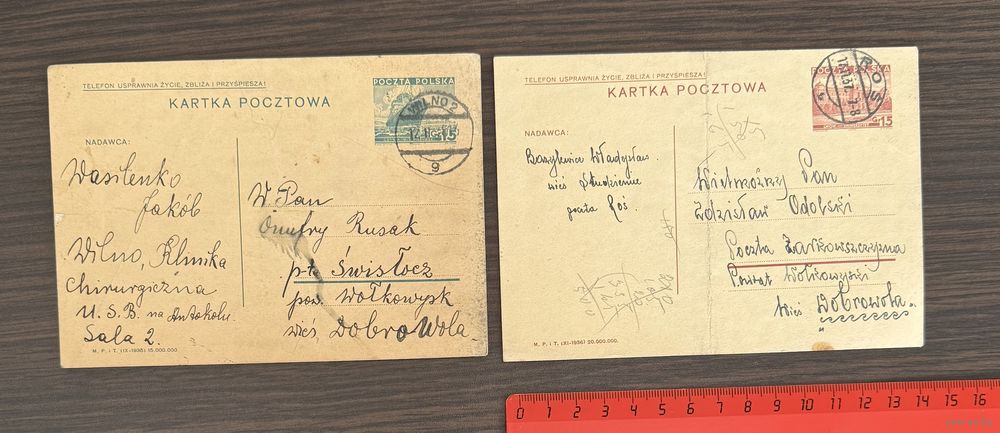 TELEFON USPRAWNIA ŻYCIE, ZBLIŻA I PRZYŚPIESZA!
KARTKA POCZTOWA
POCZTA POLSKA
GR 15
WILNO 2
9
NADAWCA:
Wasilenko
Jakób
Wilno, Klinika
Chirurgiczna
U.S.B. na Antokolu.
Sala 2.
W. Pan
Onufry Rusak
p-ta Świsłocz
pow. Wołkowysk
wieś, Dobrowola
M. P. i T. (IX-1936) 15.000.000.
TELEFON USPRAWNIA ŻYCIE, ZBLIŻA I PRZYŚPIESZA!
KARTKA POCZTOWA
POCZTA POLSKA
Gr 15
ROŚ
NADAWCA:
Władysław
wieś Studzieniec
poczta Roś.
Wielmożny Pan
Zdzisław
Poczta
Powiat Wołkowyski
Wieś Dobrowola.
M. P. i T. (XI-1936) 20.000.000.
0 1 2 3 4 5 6 7 8 9 10 11 12 13 14 15 16